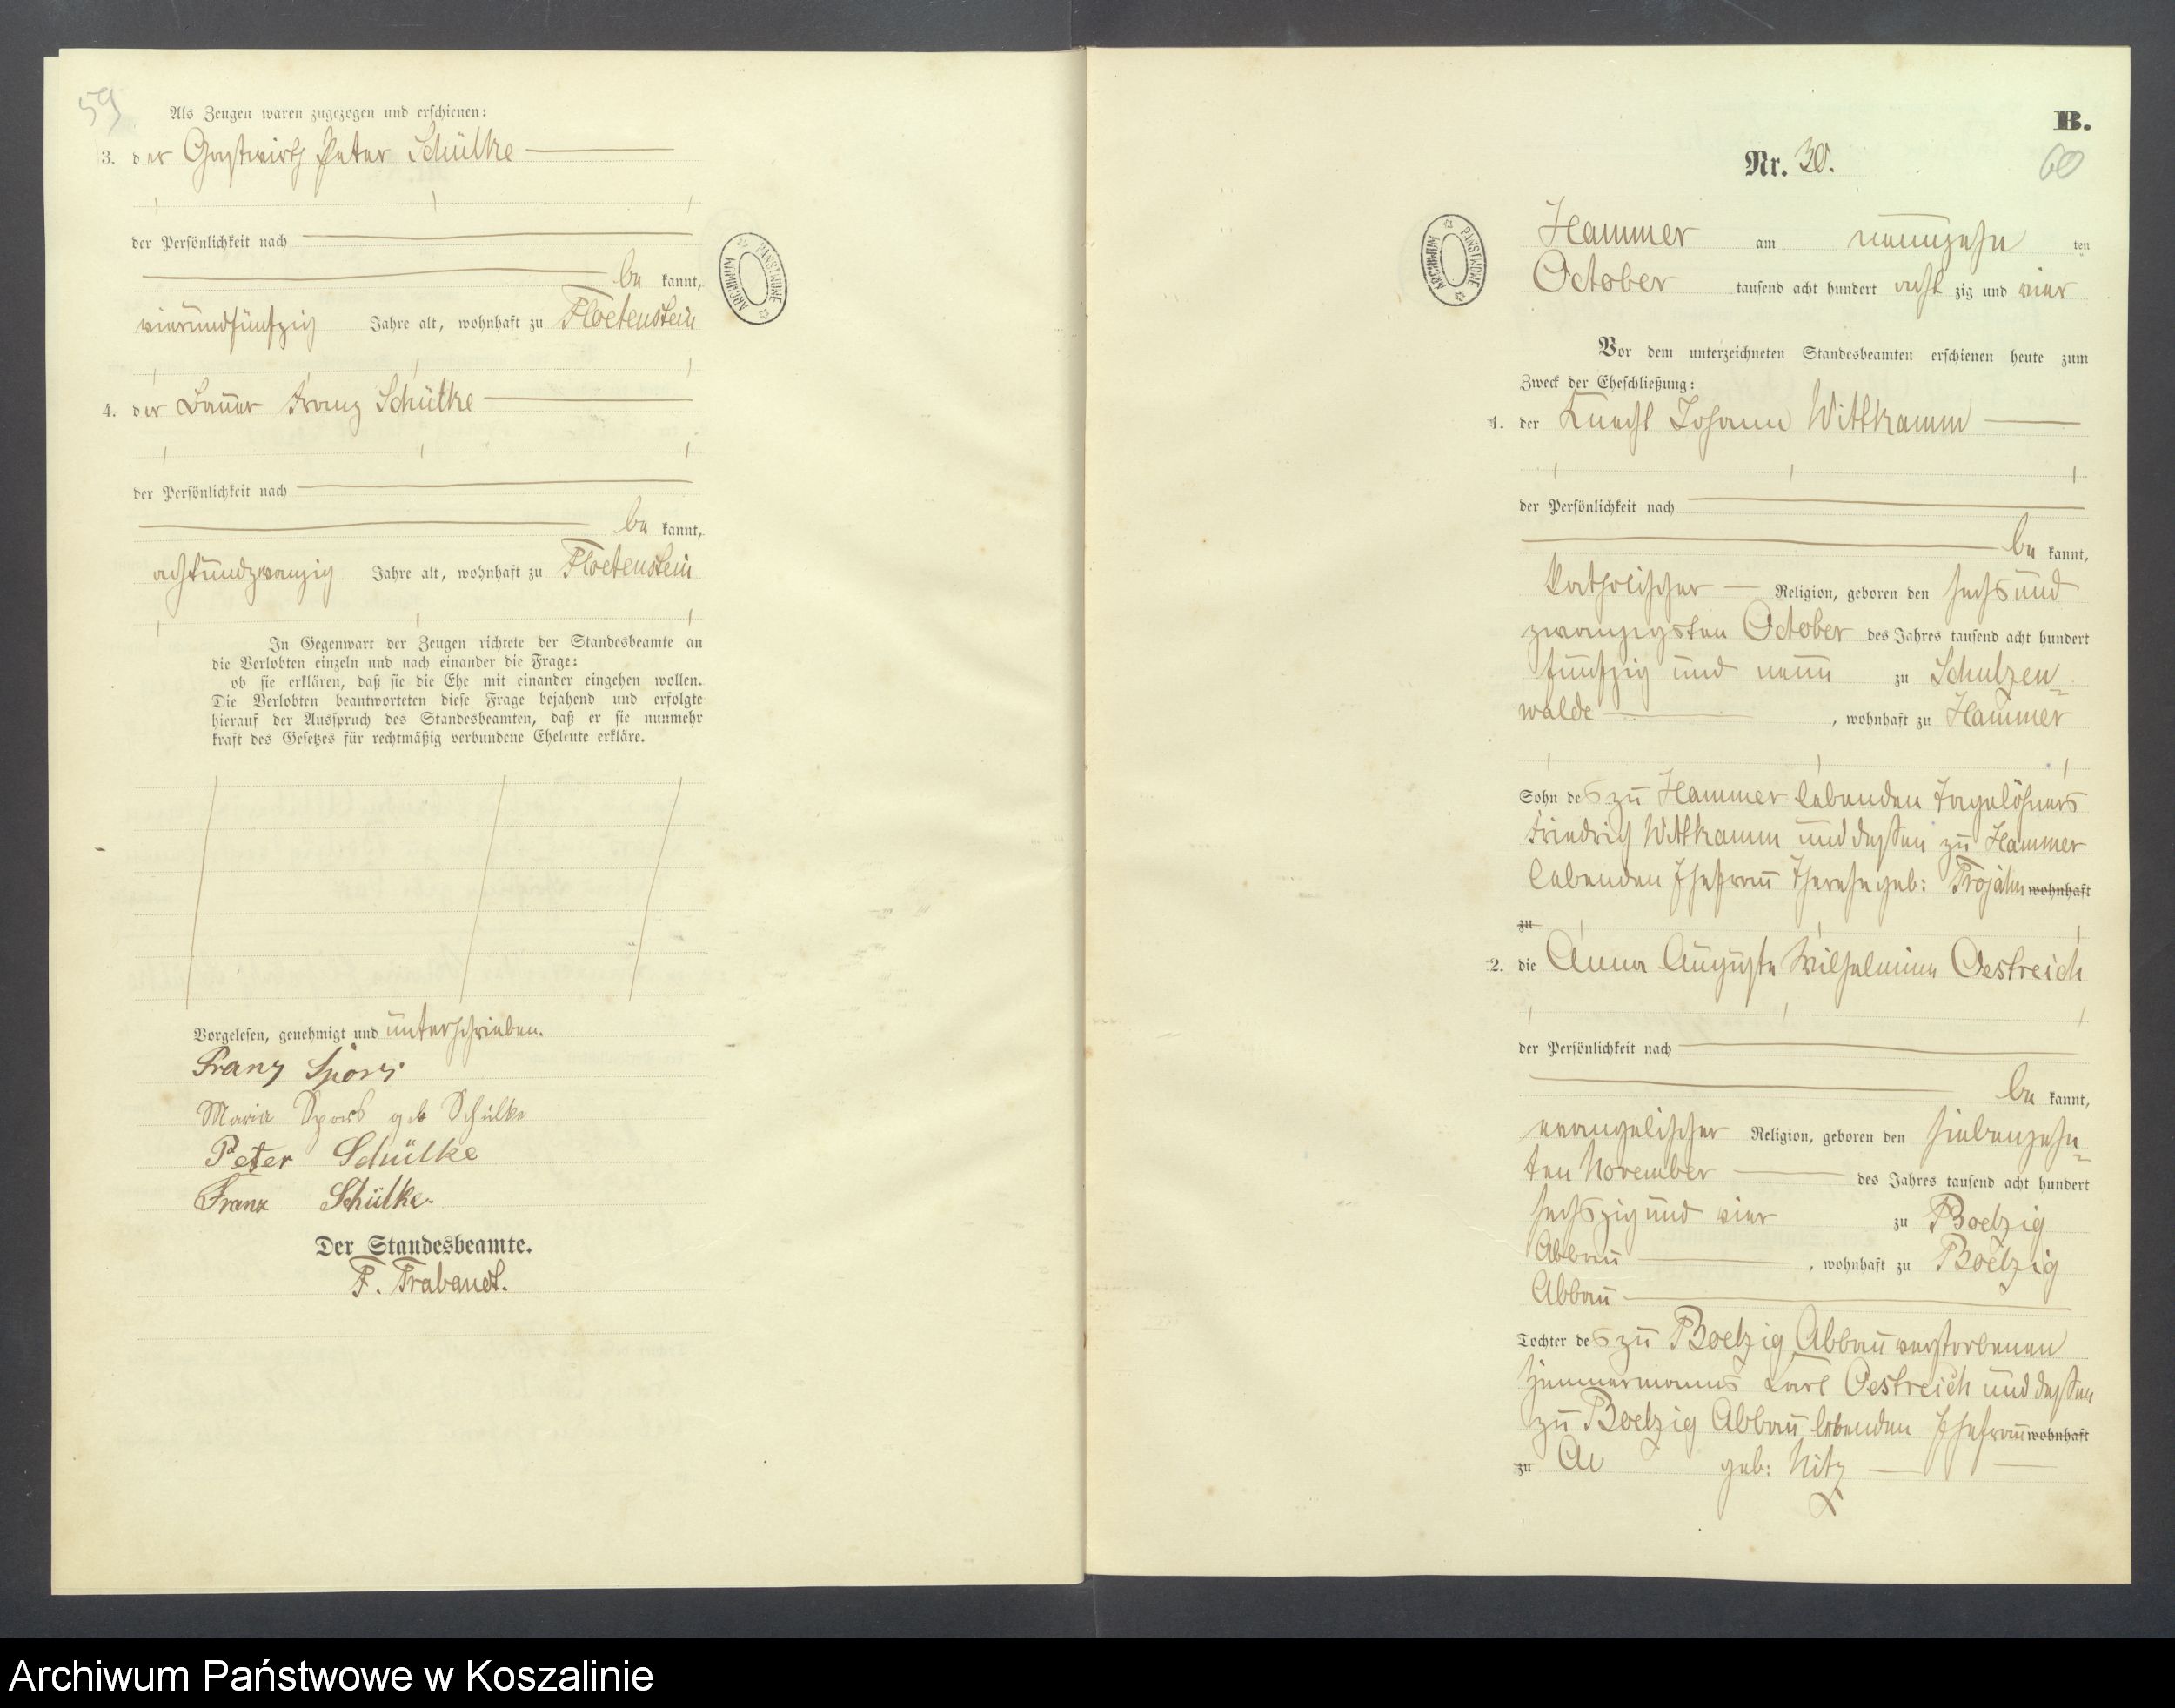 59
Als Zeugen waren zugezogen und erschienen:
3. der Gastwirth Peter Schülke
der Persönlichkeit nach
be kannt,
vierundfünfzig Jahre alt, wohnhaft zu Floetenstein
4. der Bauer Franz Schülke
der Persönlichkeit nach
be kannt,
achtundzwanzig Jahre alt, wohnhaft zu Floetenstein
In Gegenwart der Zeugen richtete der Standesbeamte an
die Verlobten einzeln und nach einander die Frage:
ob sie erklären, daß sie die Ehe mit einander eingehen wollen.
Die Verlobten beantworteten diese Frage bejahend und erfolgte
hierauf der Ausspruch des Standesbeamten, daß er sie nunmehr
kraft des Gesetzes für rechtmäßig verbundene Eheleute erkläre.
Vorgelesen, genehmigt und unterschrieben.
Franz Spors
Maria Spors geb Schülke
Peter Schülke
Franz Schülke.
Der Standesbeamte.
F. Trabandt.
ARCHIWUM PAŃSTWOWE
B.
Nr. 30.
60
ARCHIWUM PAŃSTWOWE
Hammer am neunzehn ten
October tausend acht hundert acht zig und vier
Vor dem unterzeichneten Standesbeamten erschienen heute zum
Zweck der Eheschließung:
1. der Knecht Johann Wittkamm
der Persönlichkeit nach
be kannt,
katholischer Religion, geboren den sechsund
zwanzigsten October des Jahres tausend acht hundert
fünfzig und neun zu Schulzen=
walde, wohnhaft zu Hammer
Sohn des zu Hammer lebenden Tagelöhners
Friedrich Wittkamm und dessen zu Hammer
lebenden Ehefrau Therese geb: Trojahn wohnhaft
zu
2. die Anna Auguste Wilhelmine Oestreich
der Persönlichkeit nach
be kannt,
evangelischer Religion, geboren den siebenzehn=
ten November des Jahres tausend acht hundert
sechszig und vier zu Boelzig
Abbau, wohnhaft zu Boelzig
Abbau
Tochter des zu Boelzig Abbau verstorbenen
Zimmermanns Karl Oestreich und dessen
zu Boelzig Abbau lebenden Ehefrau wohnhaft
zu geb: Nitz
Archiwum Państwowe w Koszalinie